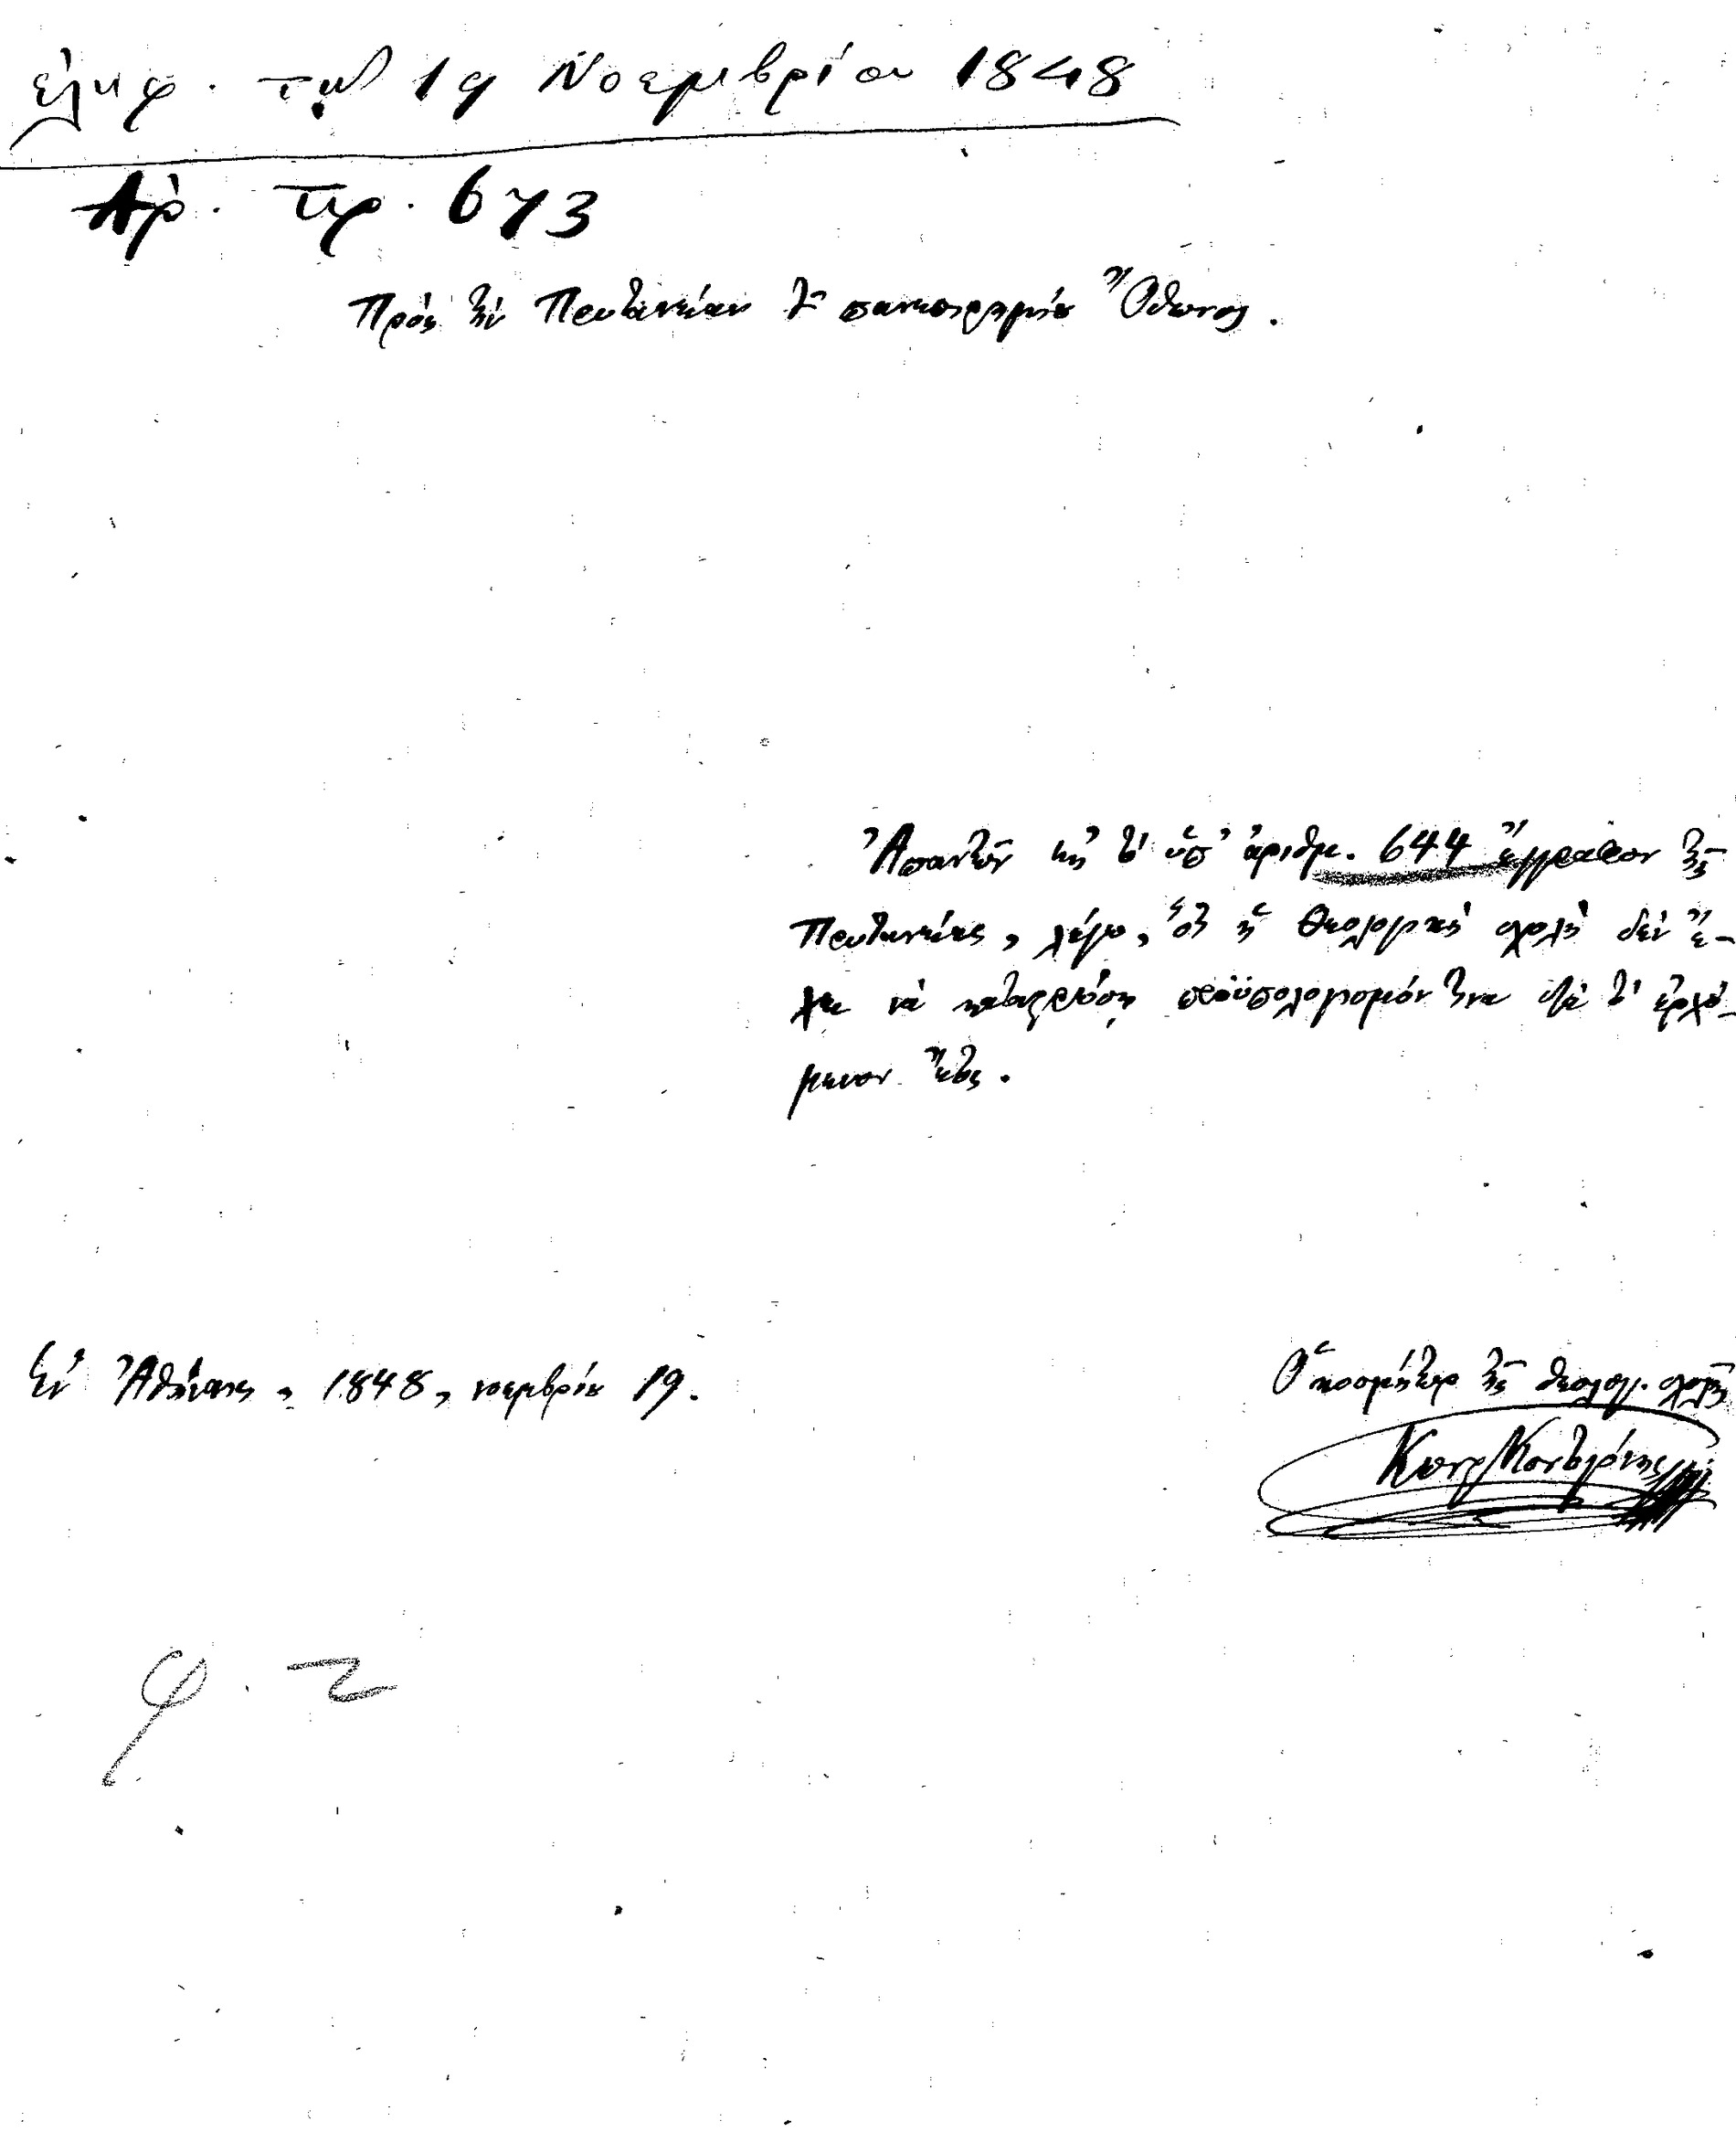 ἐλήφ. τῇ 19 Νοεμβρίου 1848
Ἀρ. πρ. 673
Πρὸς τὴν Πρυτανείαν τοῦ πανεπιστημίου Ὄθωνος.
Ἀπαντῶν εἰς τὸ ὑπ' ἀριθμ. 644 ἔγγραφον τῆς
Πρυτανείας, λέγω, ὅτι ἡ θεολογικὴ σχολὴ δὲν ἔ-
χει νὰ καταστρώσῃ προϋπολογισμόν τινα διὰ τὸ ἐρχό-
μενον ἔτος.
Ἐν Ἀθήναις, 1848, νοεμβρίου 19.
Ὁ κοσμήτωρ τῆς θεολογ. σχολῆς
Κων Κοντογόνης
φ. 2